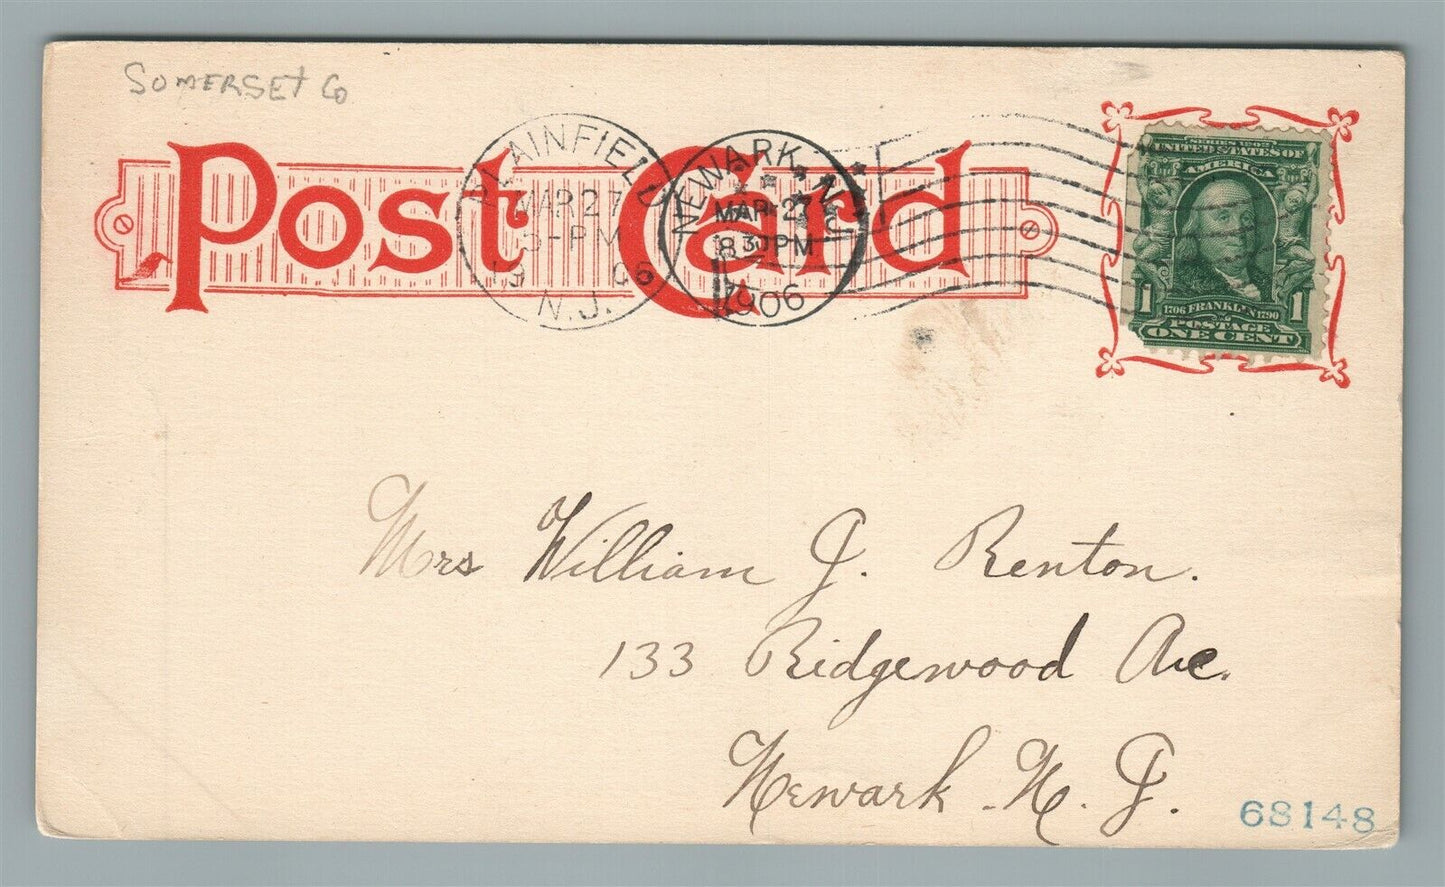 SOMERSET Co
Post Card
PLAINFIELD
MAR 27
-PM
19 06
N.J.
NEWARK, N.J.
MAR 27
830PM
1906
UNITED STATES OF
AMERICA
1 1706 FRANKLIN 1790 1
POSTAGE
ONE CENT
Mrs William J. Renton.
133 Ridgewood Ave.
Newark N. J.
68148